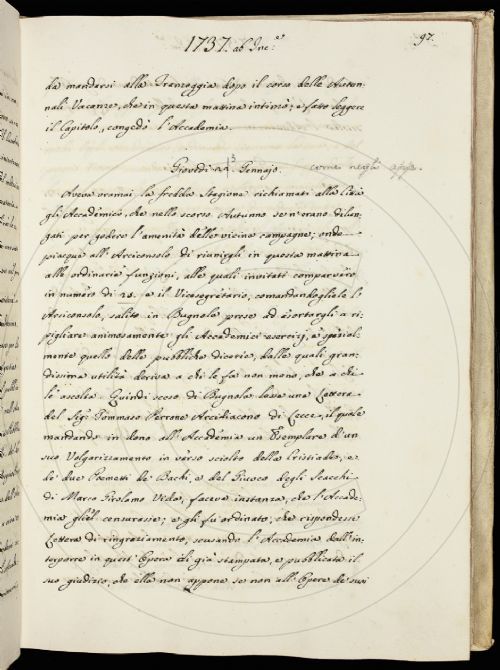 1737. ab Inc.e
97.
da mandarsi alla Tramoggia dopo il corso delle Autun-
nali Vacanze, che in questa mattina intimò; e fatto leggere
il Capitolo, congedò l'Accademia.
Giovedì 24. Gennajo.
come negli app.
Aveva oramai la fredda Stagione richiamati alla Città
gli Accademici, che nello scorso Autunno se n'erano dilun-
gati per godere l'amenità delle vicine campagne; onde
piacque all'Arciconsolo di riunirgli in questa mattina
alle ordinarie funzioni, alle quali invitati comparvero
in numero di 20. e il Vicesegretario, comandandoglielo l'
Arciconsolo, salito in Bugnola prese ad esortargli a ri-
pigliare animosamente gli Accademici esercizj, e spezial-
mente quello delle pubbliche dicerie, dalle quali gran-
dissima utilità deriva a chi le fa non meno, che a chi
le ascolta. Quindi sceso di Bugnola lesse una Lettera
del Sig.r Tommaso Perrone Arcidiacono di Lecce, il quale
mandando in dono all'Accademia un Esemplare d'un
suo Volgarizzamento in verso sciolto della Cristiade, e
de' due Poemetti de Bachi, e del Giuoco degli Scacchi
di Marco Girolamo Vida, faceva instanza, che l'Accade-
mia gliel censurasse; e gli fu ordinato, che rispondesse
Lettera di ringraziamento, scusando l'Accademia dall'in-
terporre in quest'Opera di già stampata, e pubblicata il
suo giudizio, che ella non appone se non all'Opere de' suoi